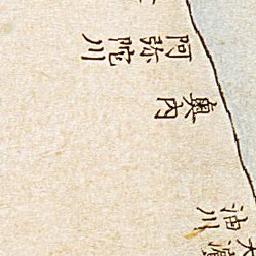 阿弥陀川
奥内
油川
大濱